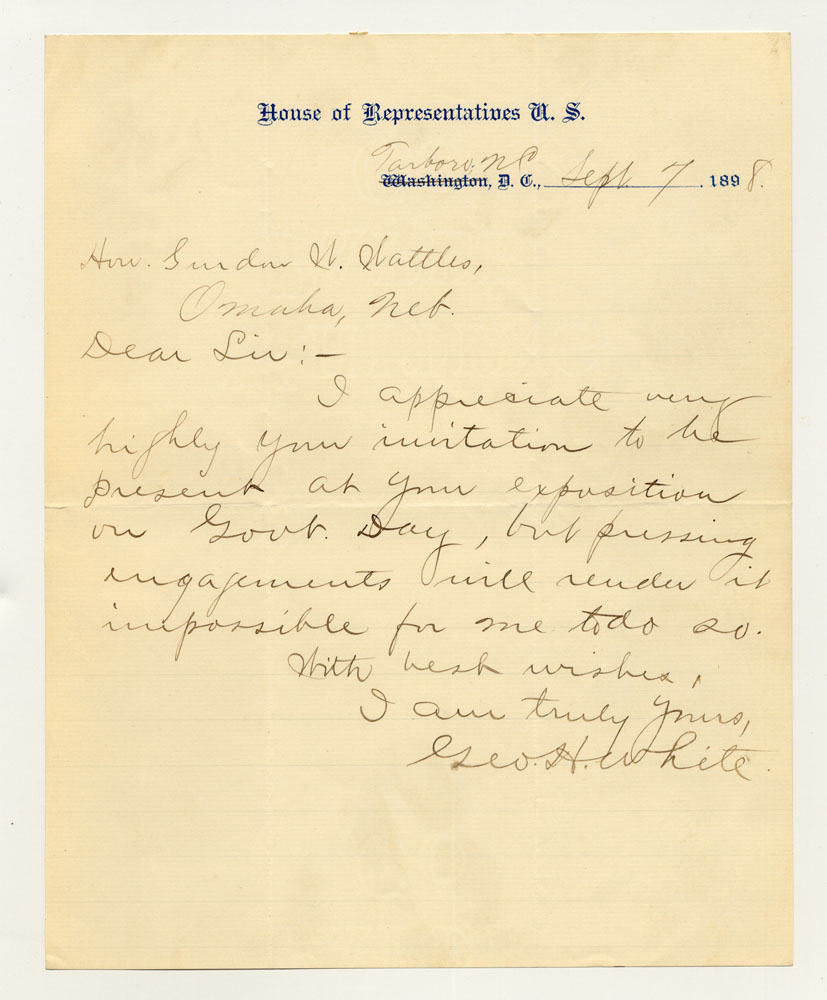 House of Representatives U. S.
Tarboro, N C
Washington, D. C., Sept. 7 1898.
Hon. Gurdon W. Wattles,
Omaha, Neb.
Dear Sir:—
I appreciate very
highly your invitation to be
present at your exposition
on Govt. Day, but pressing
engagements will render it
impossible for me to do so.
With best wishes,
I am truly yours,
Geo. H. White.